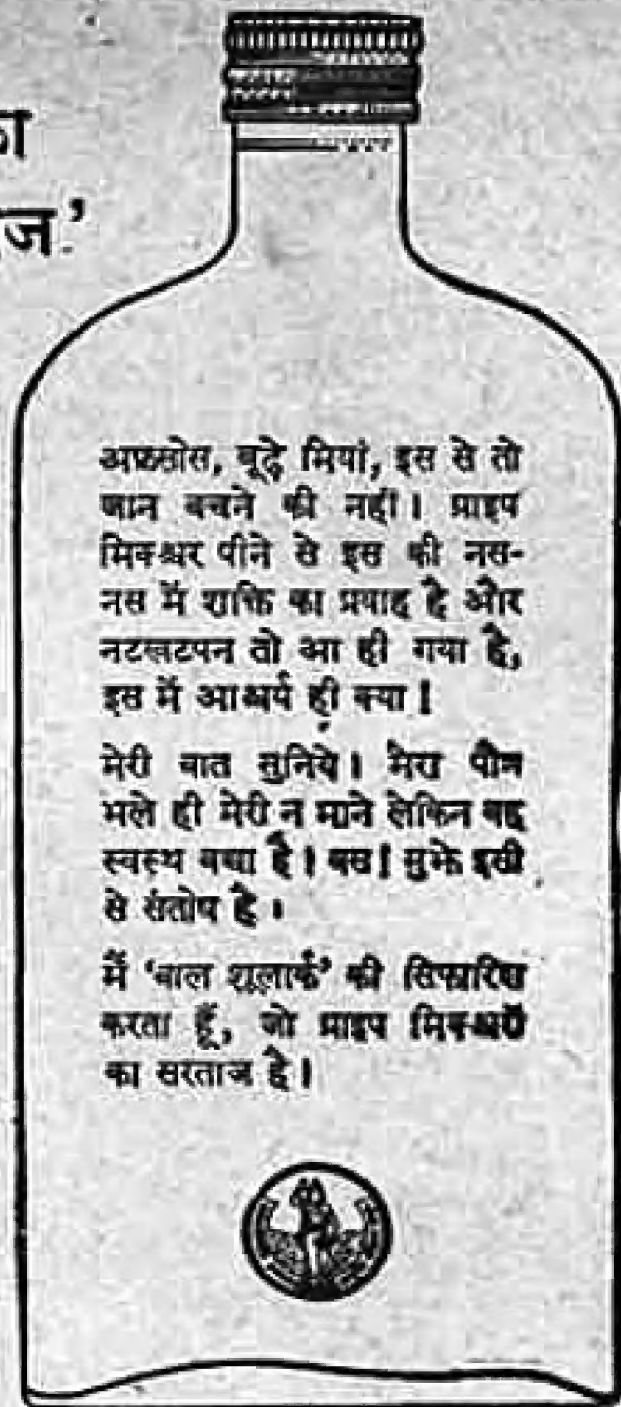 का
ज'
अफ़सोस, बूढ़े मियां, इस से तो
जान बचने की नहीं। प्राइप
मिक्श्चर पीने से इस की नस-
नस में शक्ति का प्रवाह है और
नटखटपन तो आ ही गया है,
इस में आश्चर्य ही क्या!
मेरी बात सुनिये। मेरा पौत्र
भले ही मेरी न माने लेकिन वह
स्वस्थ बच्चा है। बस! मुझे इसी
से संतोष है।
मैं 'बाल शूलार्क' की सिफारिश
करता हूँ, जो प्राइप मिक्श्चरों
का सरताज है।